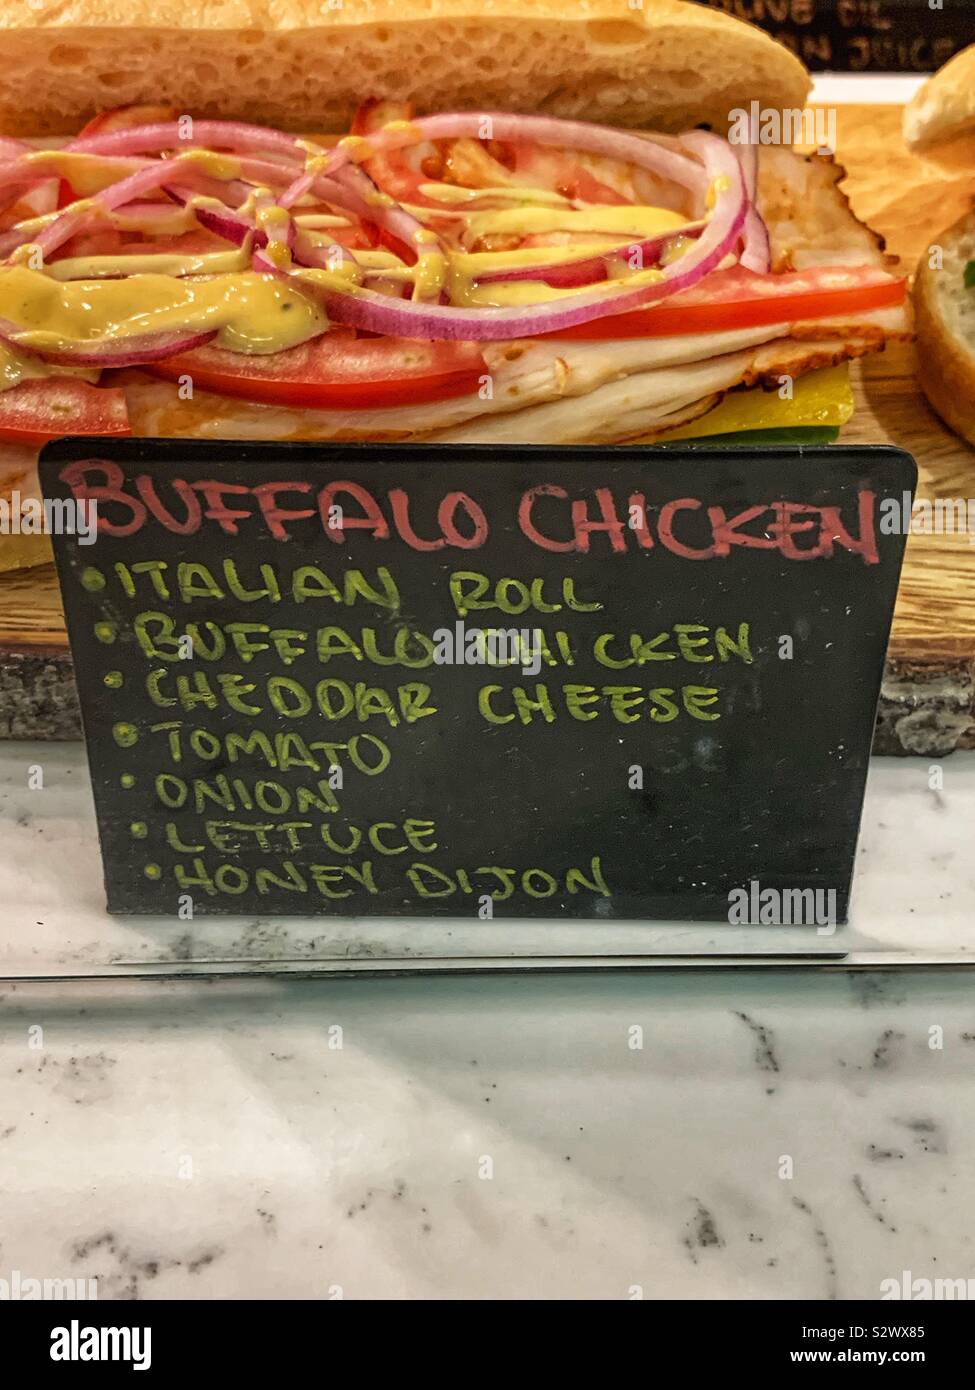 OLIVE OIL
JUICE
BUFFALO CHICKEN
• ITALIAN ROLL
• BUFFALO CHICKEN
• CHEDDAR CHEESE
• TOMATO
• ONION
• LETTUCE
• HONEY DIJON
alamy
alamy
Image ID: S2WX85
www.alamy.com